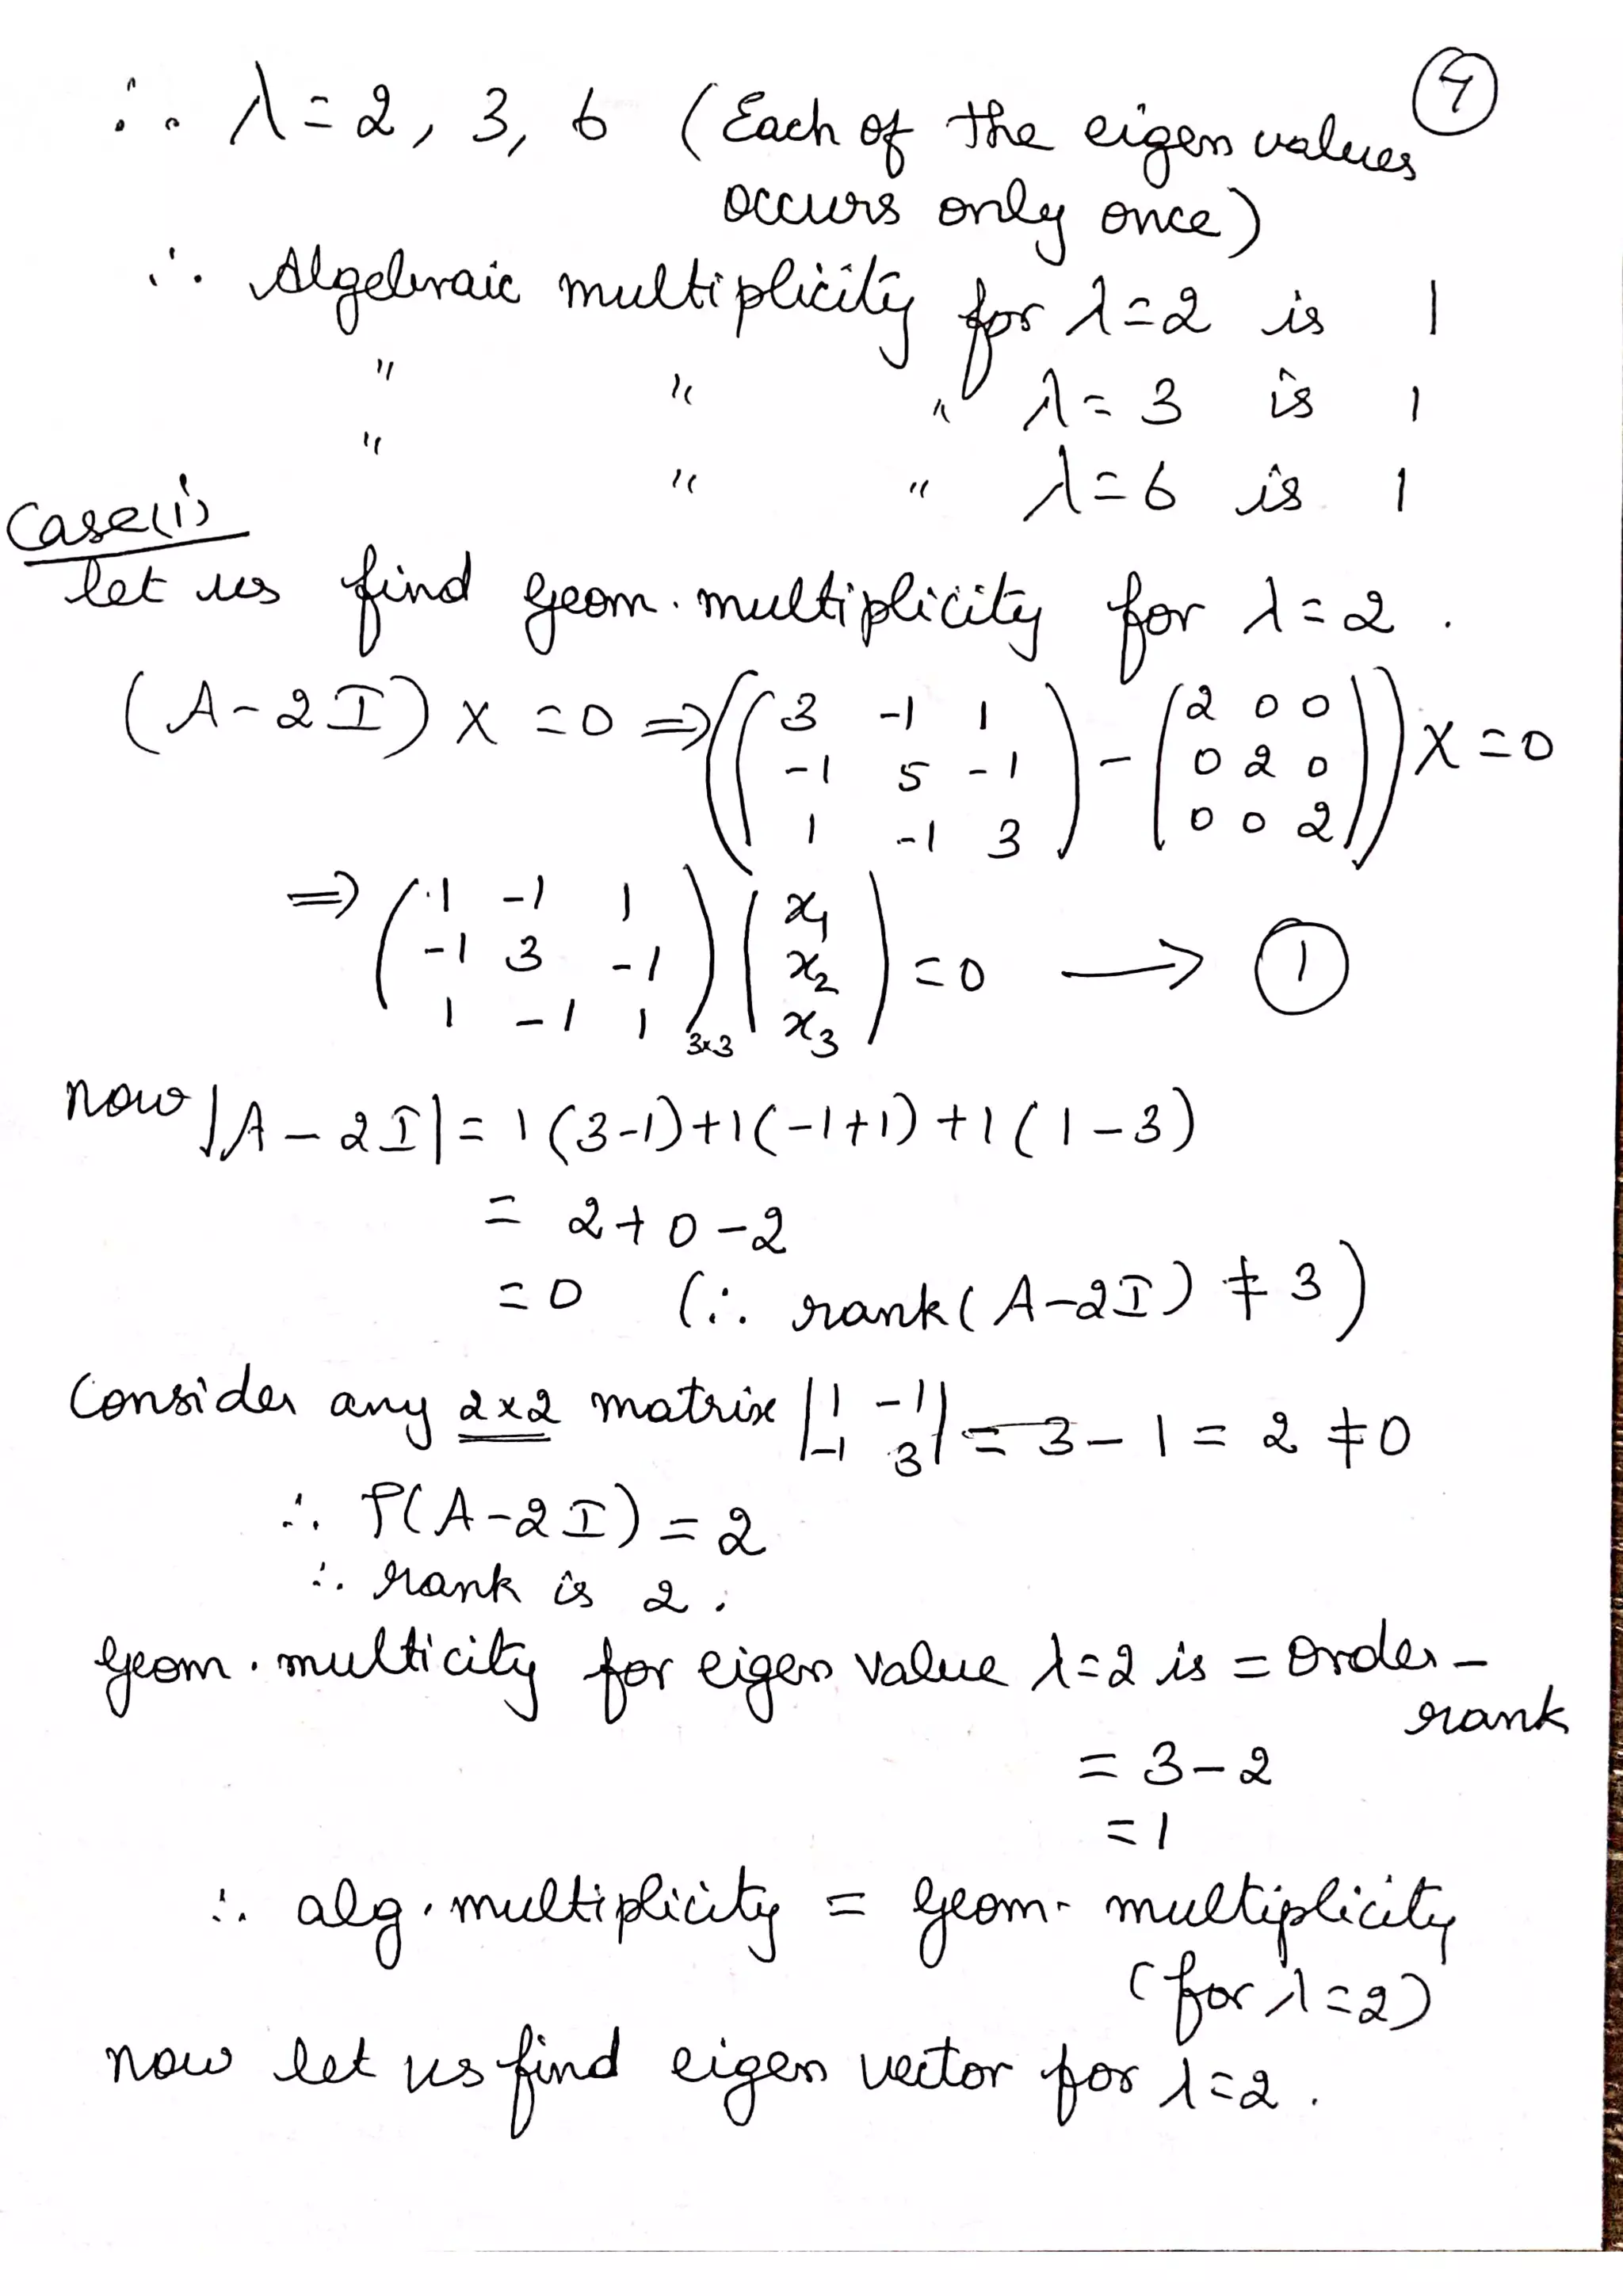 7
∴ λ = 2, 3, 6 (Each of the eigen values
occurs only once)
∴ Algebraic multiplicity for λ=2 is 1
" " " λ=3 is 1
" " " λ=6 is 1
Case(i)
let us find geom. multiplicity for λ=2.
(A-2I) X = 0 ⇒ ((3 -1 1
-1 5 -1
1 -1 3) - (2 0 0
0 2 0
0 0 2)) X = 0
⇒ (1 -1 1
-1 3 -1
1 -1 1)3x3 (x1
x2
x3) = 0 ⟶ 1
now |A-2I| = 1(3-1)+1(-1+1)+1(1-3)
= 2+0-2
= 0 (∴ rank(A-2I) ≠ 3)
Consider any 2x2 matrix |1 -1
-1 3| = 3-1 = 2 ≠ 0
∴ ρ(A-2I) = 2
∴ rank is 2.
geom. multicity for eigen value λ=2 is = order -
rank
= 3-2
= 1
∴ alg. multiplicity = geom. multiplicity
(for λ=2)
now let us find eigen vector for λ=2.